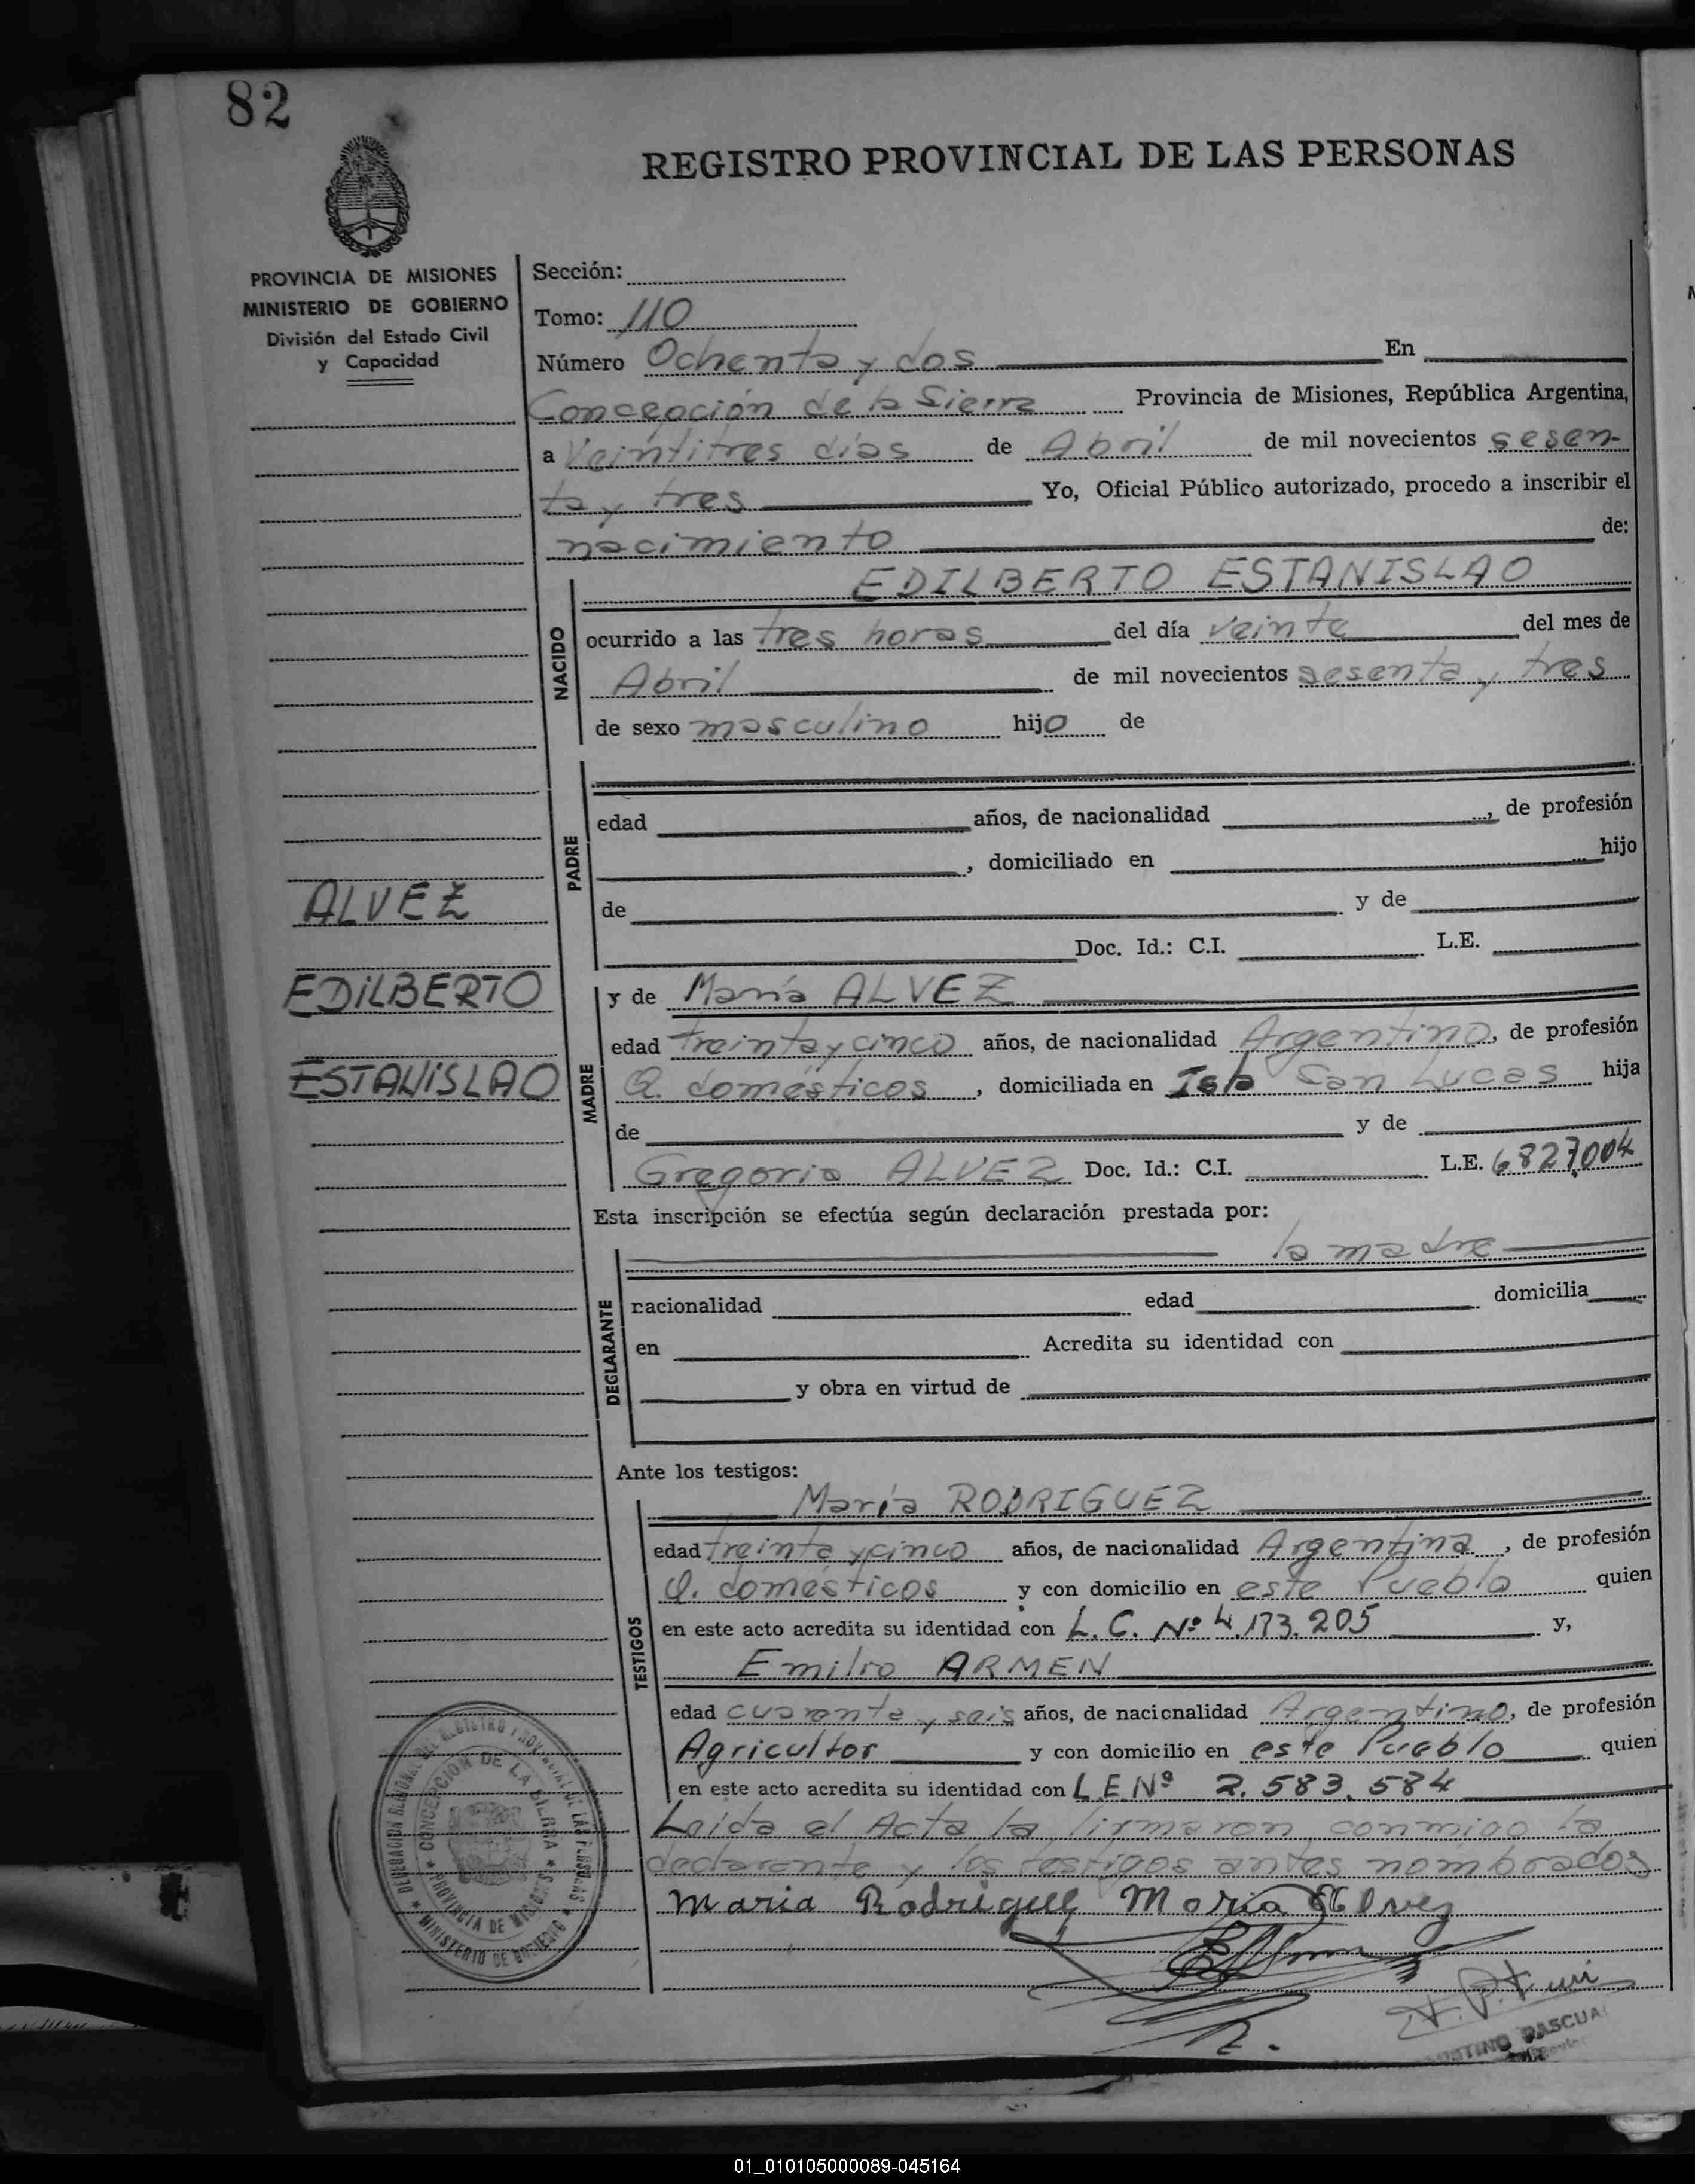 82
REGISTRO PROVINCIAL DE LAS PERSONAS
PROVINCIA DE MISIONES
MINISTERIO DE GOBIERNO
División del Estado Civil
y Capacidad
Sección:
Tomo: 110
Número Ochenta y dos En
Concepción de la Sierra Provincia de Misiones, República Argentina,
a Veintitres días de Abril de mil novecientos sesen-
ta y tres Yo, Oficial Público autorizado, procedo a inscribir el
nacimiento de:
NACIDO
EDILBERTO ESTANISLAO
ocurrido a las tres horas del día veinte del mes de
Abril de mil novecientos sesenta y tres
de sexo masculino hijo de
PADRE
edad años, de nacionalidad , de profesión
, domiciliado en hijo
de y de
Doc. Id.: C.I. L.E.
ALVEZ
EDILBERTO
ESTANISLAO
MADRE
y de María ALVEZ
edad treinta y cinco años, de nacionalidad Argentina, de profesión
Q. domésticos , domiciliada en Isla San Lucas hija
de y de
Gregoria ALVEZ Doc. Id.: C.I. L.E. 6.827.004
Esta inscripción se efectúa según declaración prestada por:
la madre
DECLARANTE
nacionalidad edad domicilia
en Acredita su identidad con
y obra en virtud de
Ante los testigos:
TESTIGOS
María RODRIGUEZ
edad treinta y cinco años, de nacionalidad Argentina , de profesión
Q. domésticos y con domicilio en este Pueblo quien
en este acto acredita su identidad con L.C. Nº 4.173.205 y,
Emilio ARMEN
edad cuarenta y seis años, de nacionalidad Argentino, de profesión
Agricultor y con domicilio en este Pueblo quien
en este acto acredita su identidad con L.E Nº 2.583.584
Leída el Acta la firmaron conmigo la
declarante y los testigos antes nombrados
Maria Rodriguez Maria Alvez
DELEGACION REGIONAL DEL REGISTRO PROVINCIAL DE LAS PERSONAS
CONCEPCION DE LA SIERRA
PROVINCIA DE MISIONES
MINISTERIO DE GOBIERNO
PASCUA
01_010105000089-045164